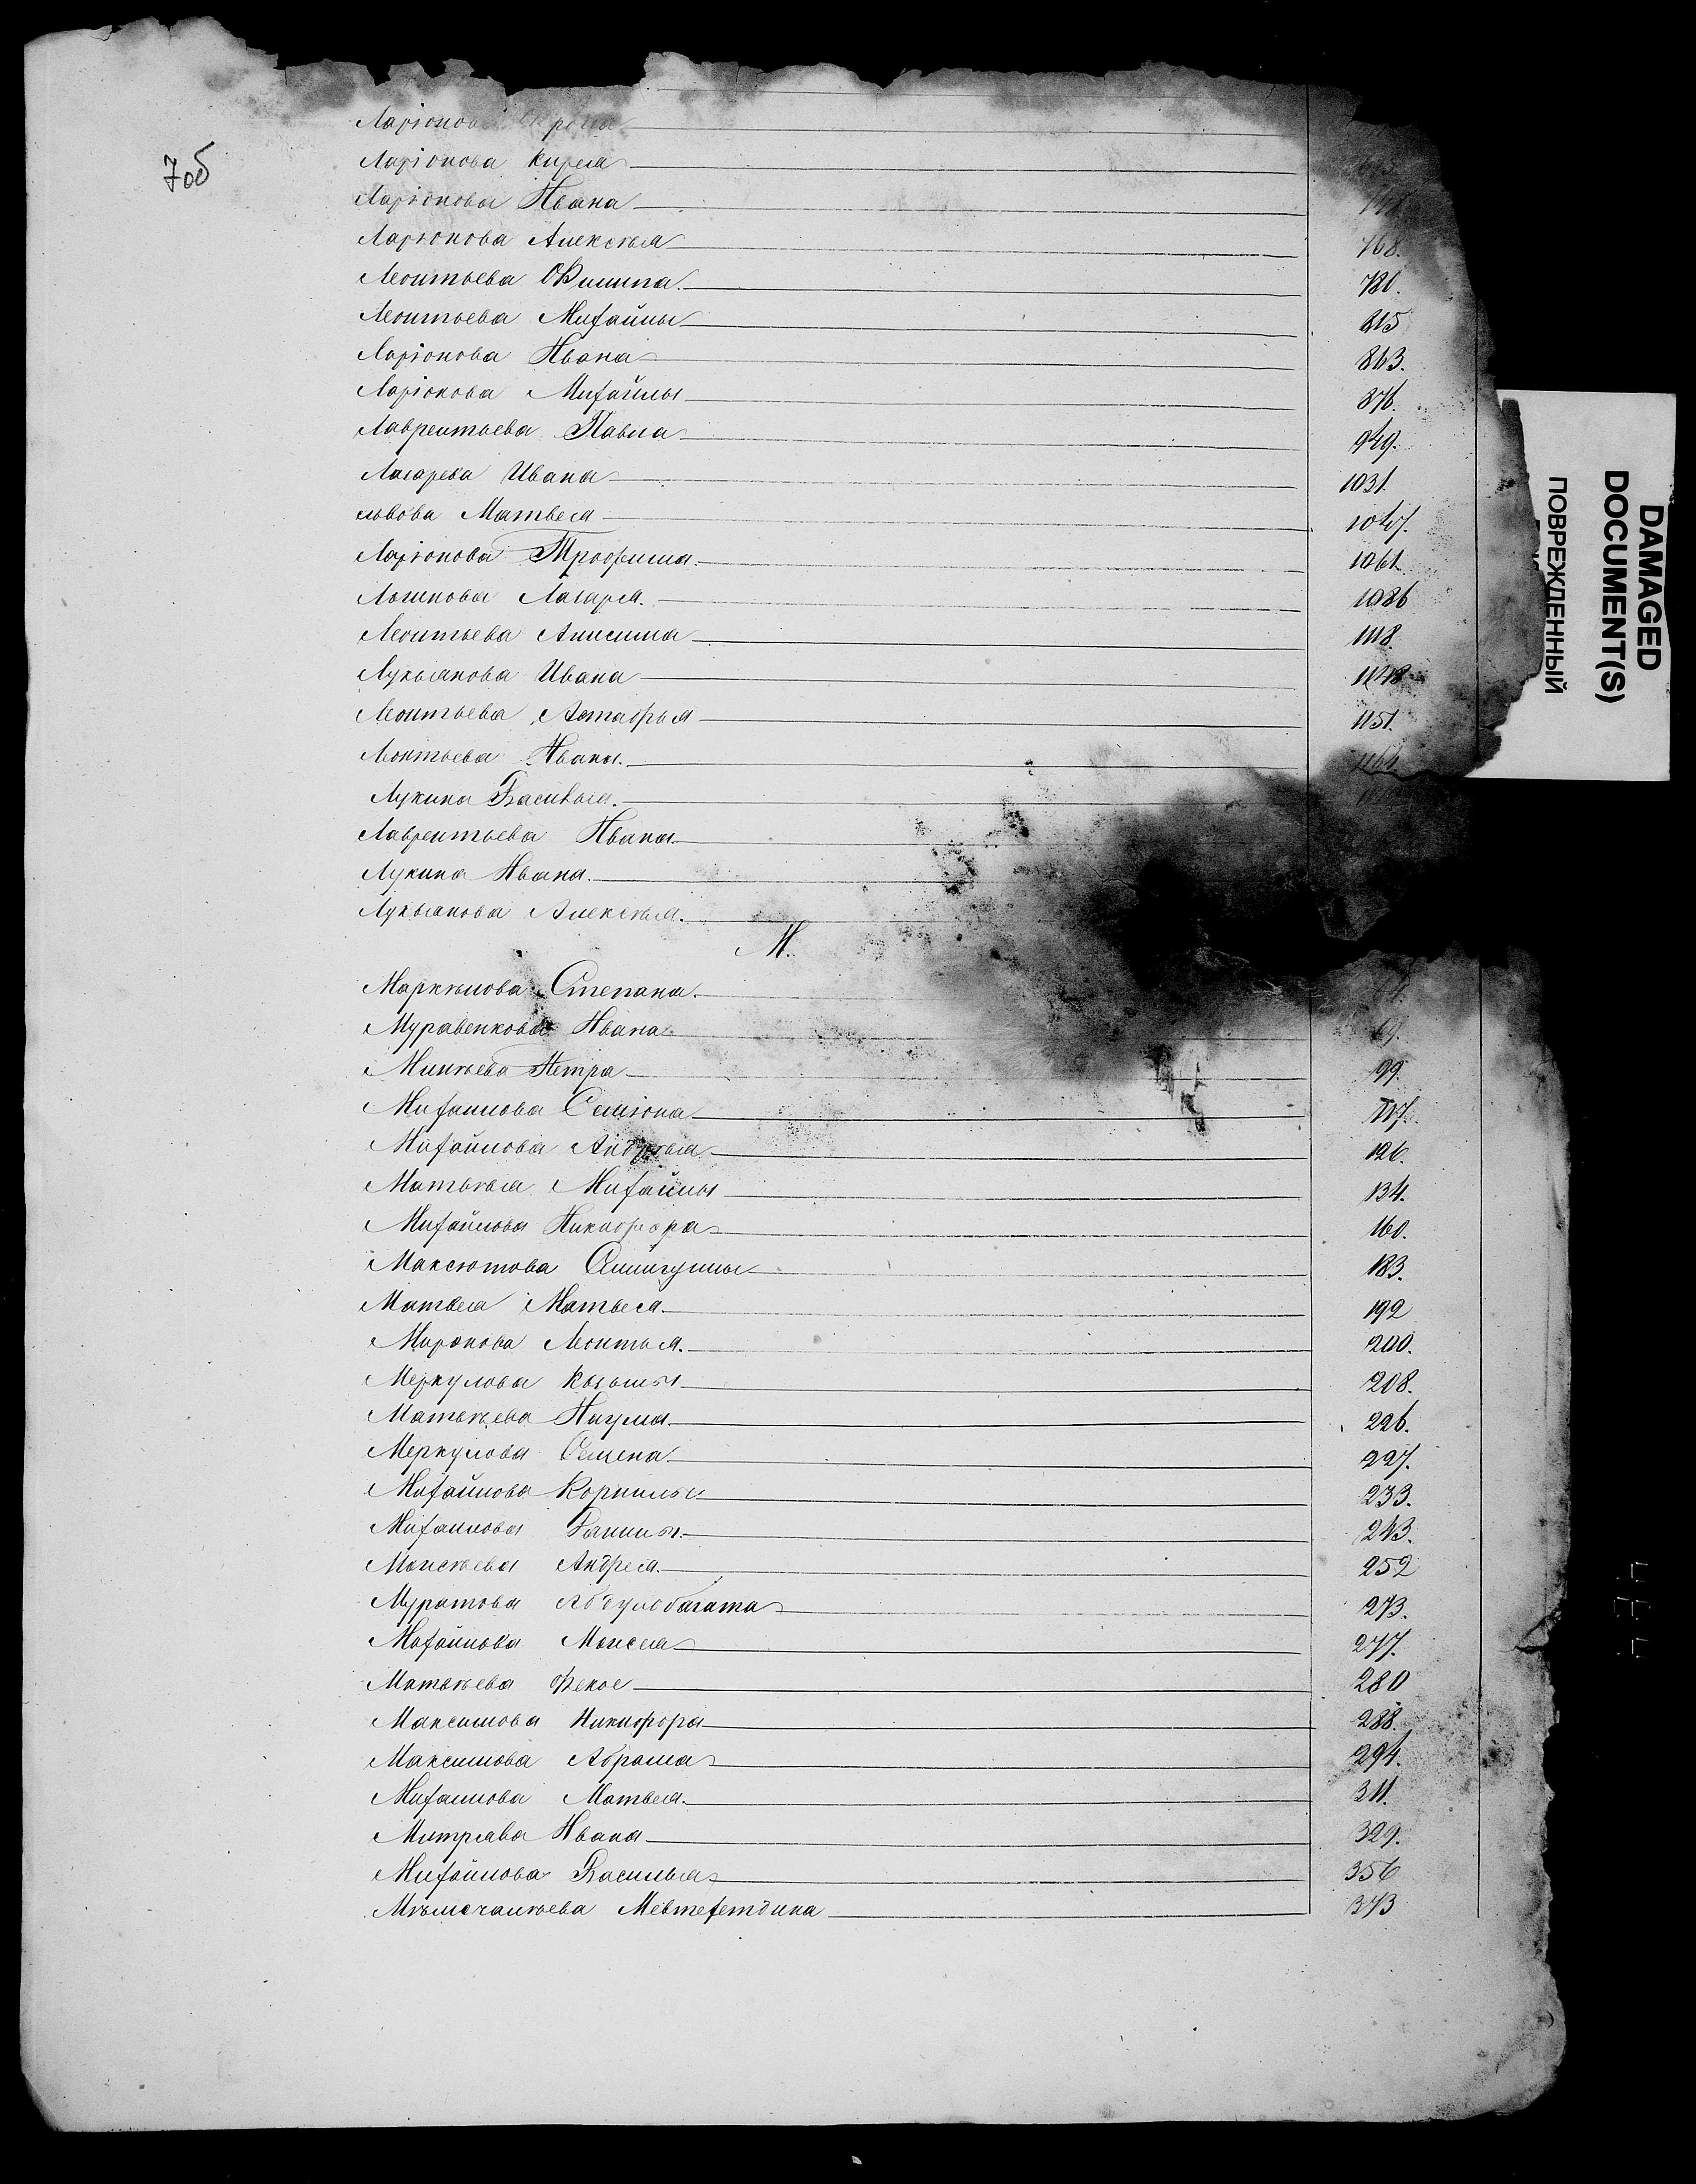 7об
Ларіонова
Ларіонова Кирея
Ларіонова Ивана 748.
Ларіонова Алексѣя 768.
Леонтьева Филипа. 780.
Леонтьева Михайлы 815
Ларіонова Ивана 863.
Ларіонова Михайлы 876.
Лаврентьева Павла 949.
Лазарева Ивана 1031.
Львова Матвея 1047.
Ларіонова Трофима. 1061.
Логинова Лазаря. 1086
Леонтьева Анисима 1118.
Лукьянова Ивана 1148
Леонтьева Астафья 1151.
Леонтьева Ивана. 1164.
Лукина Василья.
Лаврентьева Ивана.
Лукина Ивана.
Лукьянова Алексѣя.
М.
Маркѣлова Степана.
Муравенкова Ивана 69.
Минѣева Петра 99.
Михаилова Семіона 117.
Михайлова Андрѣя 126.
Матвѣя Михайлы 134.
Михайлова Никифора 160.
Максютова 183.
Матвея Матвея. 192
Миронова Леонтья. 200.
Меркулова Кузьмы 208.
Матвѣева Наума. 226.
Меркулова Семена. 227.
Михайлова Корнилы 233.
Михаилова Ганины. 243.
Моисѣева Андрея. 252
Муратова Абдулбагата 273.
Михайлова Моисея 277.
Матвѣева 280
Максимова Никифора 288.
Максимова Абрама 294.
Михаилова Матвея. 311.
Ивана 329.
Михайлова Василья 356
Мевтехетдина 373
DAMAGED
DOCUMENT(S)
ПОВРЕЖДЕННЫЙ